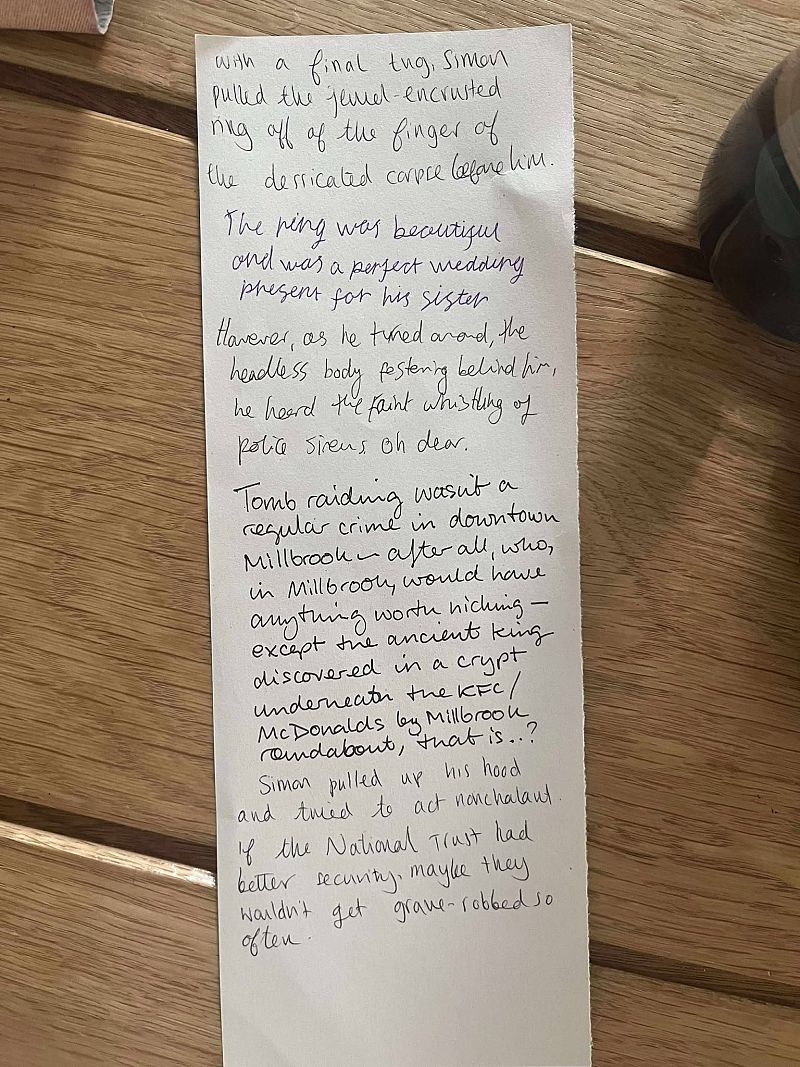 with a final tug, Simon
pulled the jewel-encrusted
ring off of the finger of
the dessicated corpse before him.
The ring was beautiful
and was a perfect wedding
present for his sister
However, as he turned around, the
headless body festering behind him,
he heard the faint whistling of
police sirens oh dear.
Tomb raiding wasn't a
regular crime in downtown
Millbrook – after all, who,
in Millbrook, would have
anything worth niching –
except the ancient king
discovered in a crypt
underneath the KFC/
McDonalds by Millbrook
roundabout, that is..?
Simon pulled up his hood
and tried to act nonchalant.
If the National Trust had
better security, maybe they
wouldn't get grave-robbed so
often.